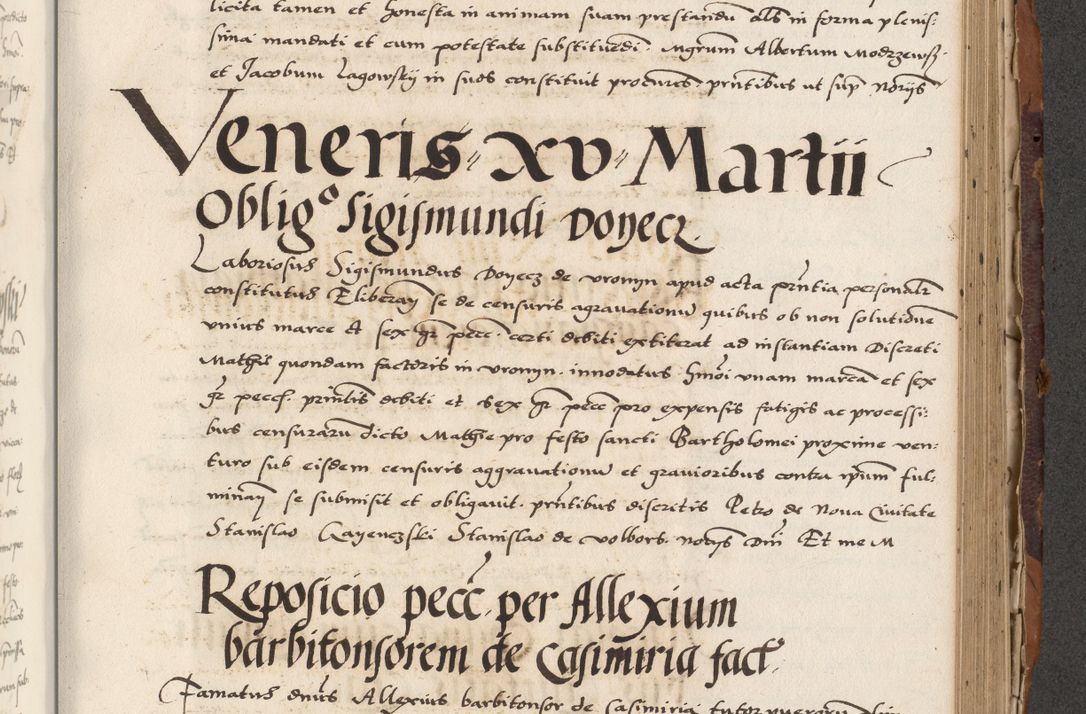 licita tamen et honesta in animam suam prestandū als in forma plenis:
sima mandati et cum potestate substituendi. Mgrum Albertum Modrzewsẏ
et Jacobum Lagowskij in suos constituit procures. prntibus ut supᵃ Notrijs
Veneris xv Martii
Obligᵒ Sigismundi Doyecz
Laboriosus Sigismundus Doyecz de Vromyn apud acta prntia personalr
constitutus Eliberan se de censuris agravationū quibus ob non solutione
unius marce et sex gr pecc. certi debiti extiterat ad instantiam Discreti
Mathie quondam factoris in Vromyn. innodatus. hmoi unam marcā et sex
gr pecc. printis debiti et sex gr pecc pro expensis fatigis ac processi:
bus censurarū dicto Mathie pro festo sancti Bartholomei proxime ven:
turo sub eisdem censuris aggravationū et gravioribus contra ipum ful:
minan se submisit et obligavit. prntibus discretis Petro de Nova Civitate
Stanislao Kayenczski Stanislao de Volbors. Notrijs Dni Et me M
Reposicio pecc. per Allexium
barbitonsorem de Casimiria fact
Famatus dnus Allexius barbitonsor de Casimiria tutor